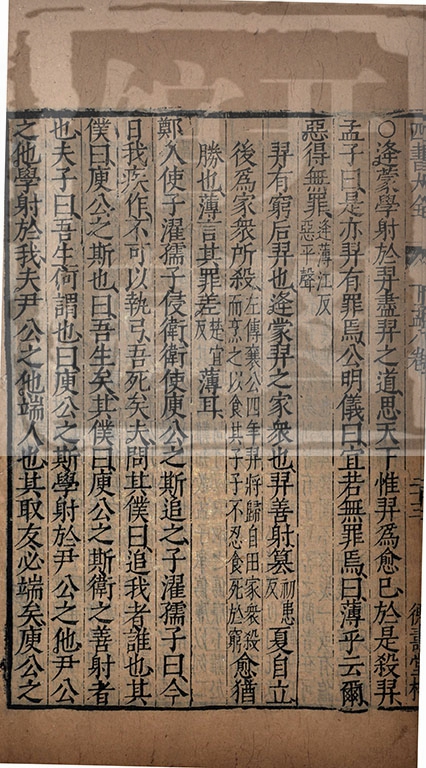 ○逄蒙學射於羿盡羿之道思天下惟羿爲愈己於是殺羿
孟子曰是亦羿有罪焉公明儀曰宜若無罪焉曰薄乎云爾
惡得無罪逄薄江反惡平聲
羿有窮后羿也逄蒙羿之家衆也羿善射簒初患反夏自立
後爲家衆所殺左傳襄公四年羿將歸自田家衆殺而烹之以食其子子不忍食死於窮愈猶
勝也薄言其罪差楚宜反薄耳
鄭人使子濯孺子侵衛衛使庾公之斯追之子濯孺子曰今
日我疾作不可以執弓吾死矣夫問其僕曰追我者誰也其
僕曰庾公之斯也曰吾生矣其僕曰庾公之斯衛之善射者
也夫子曰吾生何謂也曰庾公之斯學射於尹公之他尹公
之他學射於我夫尹公之他端人也其取友必端矣庾公之